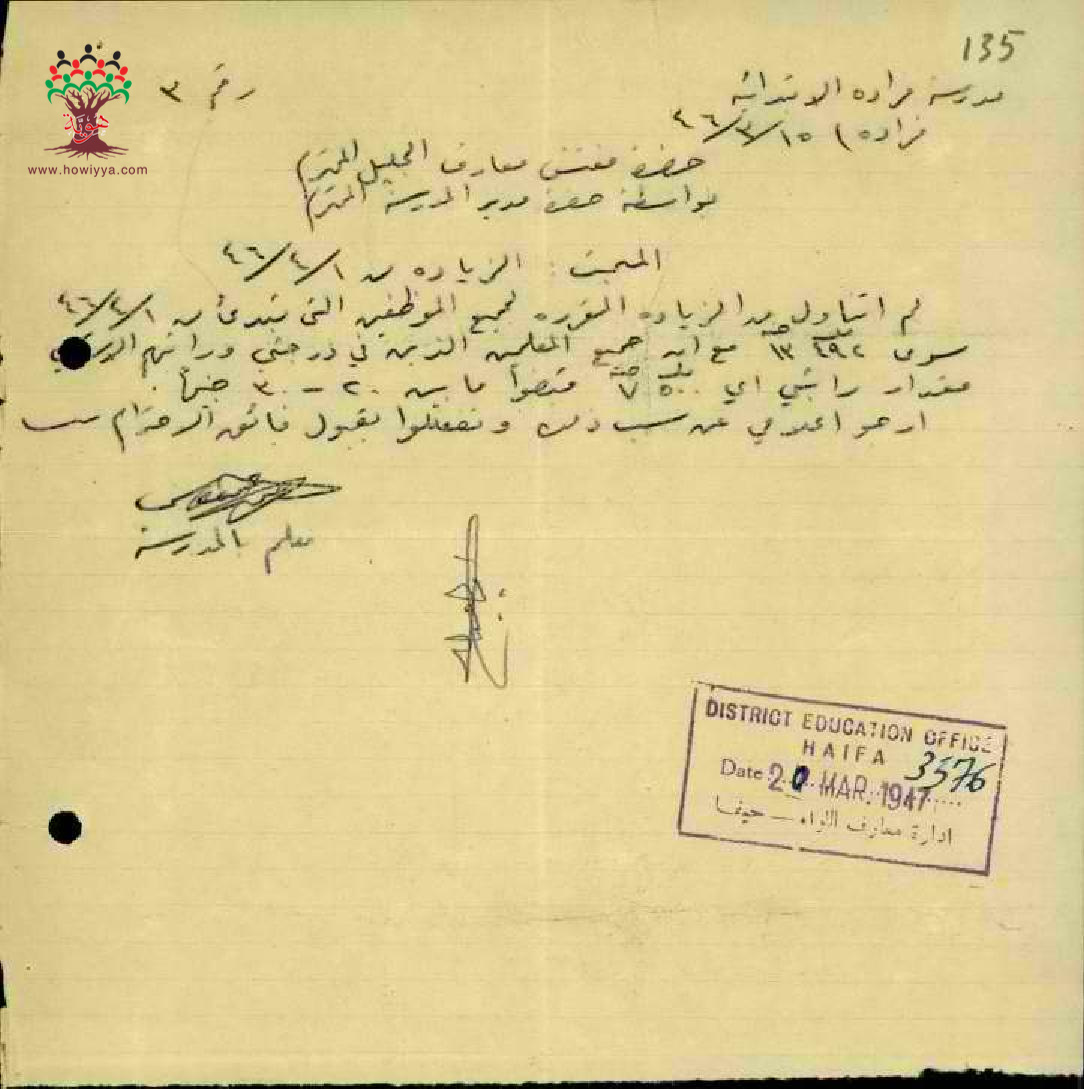 135
مدرسة فراده الابتدائية
رقم ٣
فراده) ١٥/٣/٤٦
حضرة مفتش معارف الجليل المحترم
بواسطة حضرة مدير المدرسة المحترم
المبحث: الزياده من ١/٤/٤٦
لم اتناول من الزياده المقرره لجميع الموظفين التي تبتدئ من ١/٤/٤٦
سوى ٢٩٢ مل ١٣ جنيه مع ان جميع المعلمين الذين في درجتي وراتبهم
مقدار راتبي اي ٥٠٠ مل ٧ جنيه قبضوا ما بين ٢٠ - ٣٠ جنيهاً.
ارجو اعلامي عن سبب ذلك وتفضلوا بقبول فائق الاحترام
معلم المدرسة
DISTRICT EDUCATION OFFICE
HAIFA
3576
Date 20 MAR. 1947
ادارة معارف اللواء — حيفا
www.howiyya.com